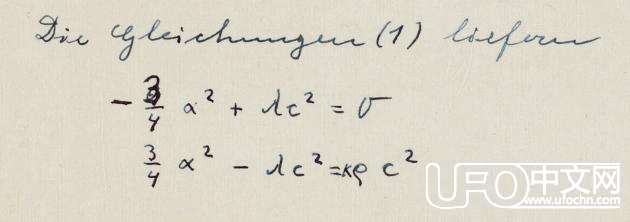 Die Gleichungen (1) liefern
- 3/4 α² + λc² = 0
3/4 α² - λc² = κρ c²
UFO中文网
www.ufochn.com